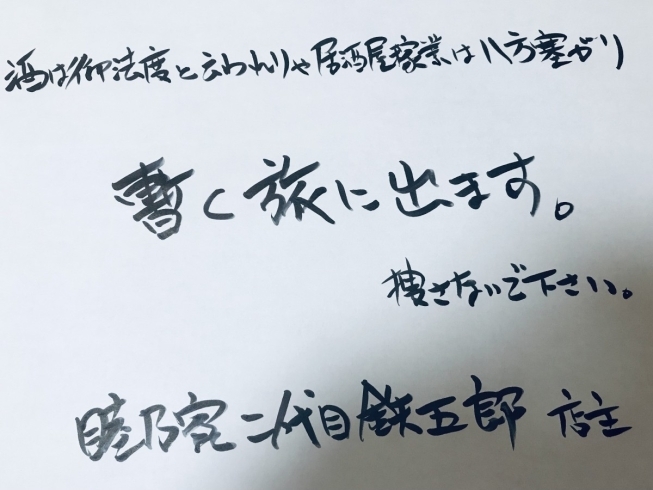 酒は御法度と云われりゃ居酒屋稼業は八方塞がり
暫く旅に出ます。
捜さないで下さい。
睦乃宛二代目鉄五郎 店主